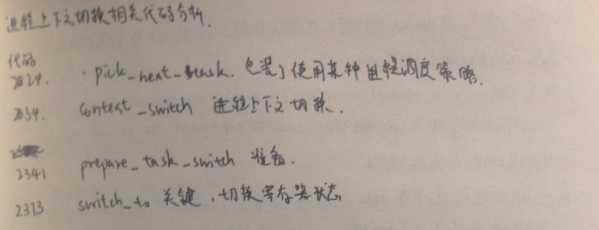 进程上下文切换相关代码分析.
代码
2829. · pick_next_task. 包装了使用某种进程调度策略.
2834. context_switch 进程上下文切换.
2341 prepare_task_switch 准备.
2373 switch_to 关键, 切换寄存器状态